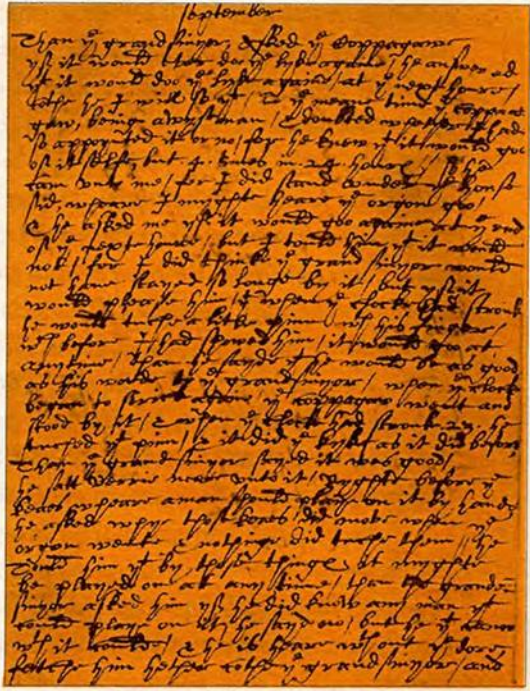 September
Than ye grand sinyor asked ye Coppagawe
yf it would ever doo ye lyke againe, he answered
yt it would doo ye lyke againe at ye next houre,
cothe he I will se yt, in ye meane time ye Coppa
gaw, being a wyse man, & doubted whether I had
so appoynted it or no, for he knew yt it would goo
of it selfe but 4 times in 24 houres, so he
cam unto me, for I did stand under ye house
sid wheare I myghte heare ye orgon goo,
& he asked me yf it would goo againe at ye end
of ye nexte houre, but I tould him yt it would
not, for I did thinke ye grand sinyor would
not have stayed so longe by it, but yf it
would please him, yt when ye clocke had strouk
he would tuche a litle pinn wth his finger,
wch before I had shewed him, it would goo at
anytime, than he sayde yt he would be as good
as his worde to ye grand sinyor, when ye clocke
began to strick againe, ye coppagaw went and
stood by it, & when ye clocke had strouke 23, he
tuched yt pinn, & it did ye lyke as it did before,
Than ye grand sinyor sayed it was good,
he satt verrie neare unto it, ryghte before ye
keaes wheare a man should playe on it by hande
he asked whye those keaes did move when ye
orgon wente & nothinge did tuche them, he
tould him yt by those thinges it myghte
be played on at any time, than the grande
sinyor asked him yf he did know any man yt
could playe on it, he sayd no, but he yt came
wth it coulde, & he is heare wthout ye dore,
fetche him hether cothe ye grand sinyor, and